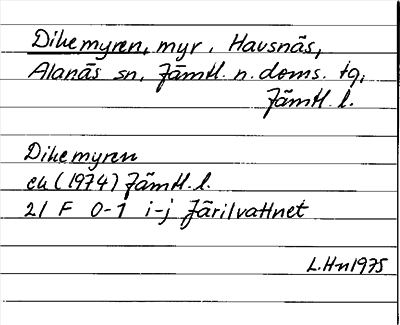 Dikemyren, myr, Havsnäs,
Alanäs sn, Jämtl. n. doms. tg,
Jämtl. l.
Dikemyren
ek (1974) Jämtl. l.
21 F 0-1 i-j Järilvattnet
L.H-n 1975